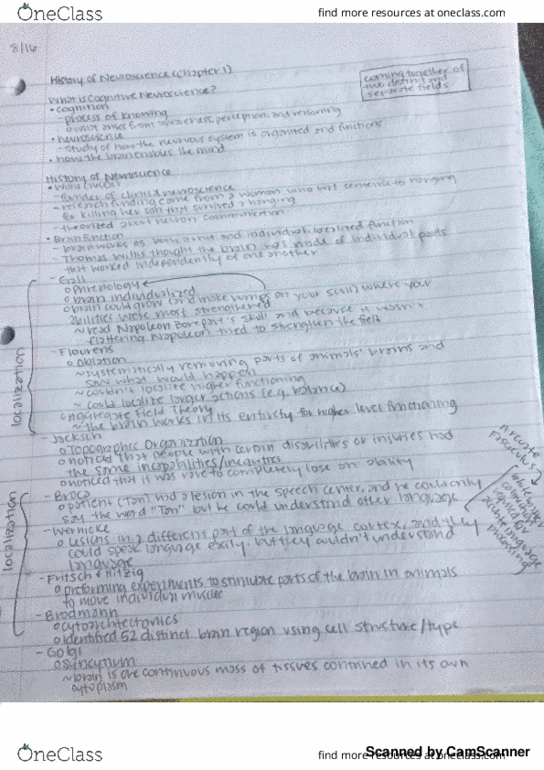 OneClass
find more resources at oneclass.com
8/16
History of Neuroscience (Chapter 1)
coming together of
two distinct and
separate fields
What is Cognitive Neuroscience?
• cognition
- process of knowing
o what arises from awareness, perception, and reasoning
• neuroscience
- study of how the nervous system is organized and functions
• how the brain enables the mind
History of Neuroscience
• Willis
- founder of clinical neuroscience
- research funding came from a woman who was sentence to hanging
for killing her son that survived a hanging
- theorized about neuron communication
• Brain function
- brain works as both a unit and individual, localized function
- Thomas Willis thought the brain was made of individual parts
that worked independently of one another
- Gall
o Phrenology
o brain individualized
o brain could grow (and make bumps on your skull) where your
abilities were most strengthened
~ read Napoleon Bonepart's skull and because it wasn't
flattering Napoleon tried to the field
- Flourens
o Ablation
~ systematically removing parts of animals' brains and
saw what would happen
~ couldn't localize higher functioning
~ could localize larger actions (e.g. balance)
o Aggregate Field Theory
~ the brain works in its entirety for higher level functioning
localization
- Jackson
o Topographic Organization
o noticed that people with certain disabilities or injuries had
the same
o noticed that it was rare to completely lose an ability
- Broca
o patient (Tan) had a lesion in the speech center, and he could only
say the word "Tan" but he could understand other language
- Wernicke
o lesions in a different part of the language cortex, and they
could speak language easily, but they wouldn't understand
language
Arcuate
Fasciculus
- Fritsch & Hitzig
o preforming experiments to stimulate parts of the brain in animals
to move individual muscles
- Brodmann
o cytoarchitectonics
o identified 52 distinct brain region using cell structure/type
localization
- Golgi
o syncytium
~ brain is one continuous mass of tissues contained in its own
cytoplasm
OneClass
find more resources at oneclass.com
Scanned by CamScanner